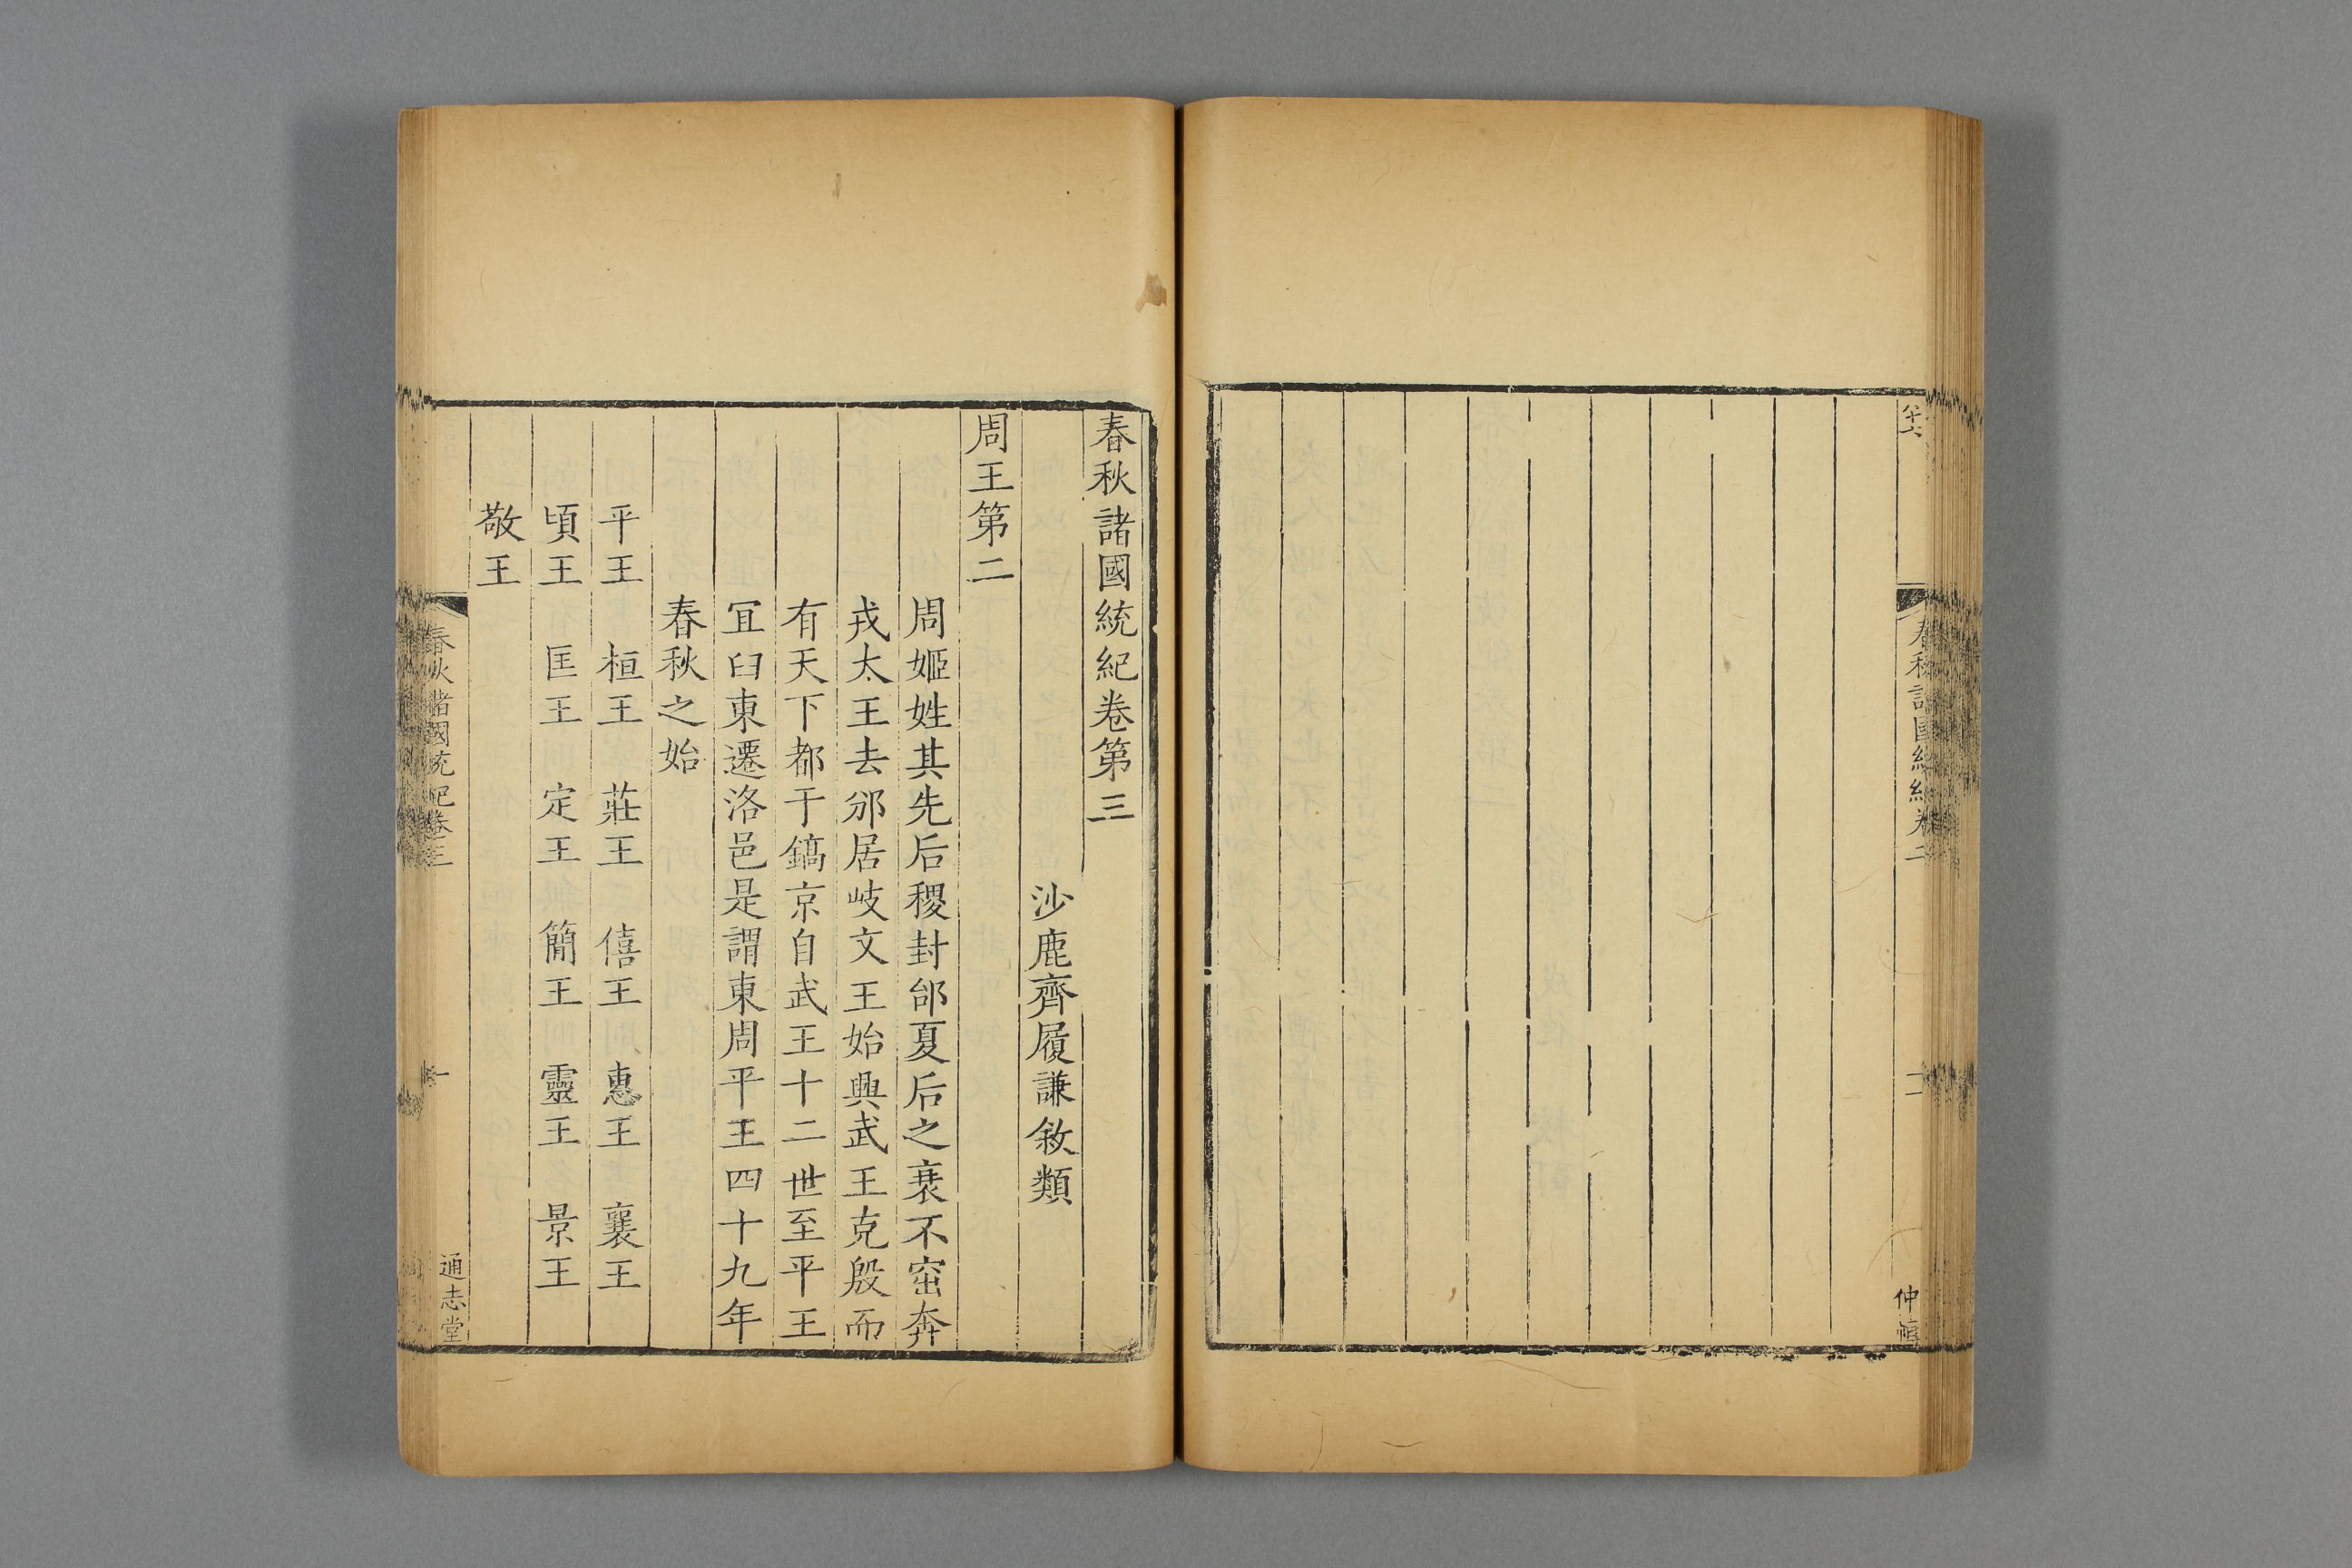 春秋諸國統紀卷二
仲
春秋諸國統紀卷第三
沙鹿齊履謙敘類
周王第二
周姬姓其先后稷封邰夏后之衰不窋奔
戎太王去邠居岐文王始興武王克殷而
有天下都于鎬京自武王十二世至平王
宜臼東遷洛邑是謂東周平王四十九年
春秋之始
平王 桓王 莊王 僖王 惠王 襄王
頃王 匡王 定王 簡王 靈王 景王
敬王
春秋諸國統紀卷三
一
通志堂